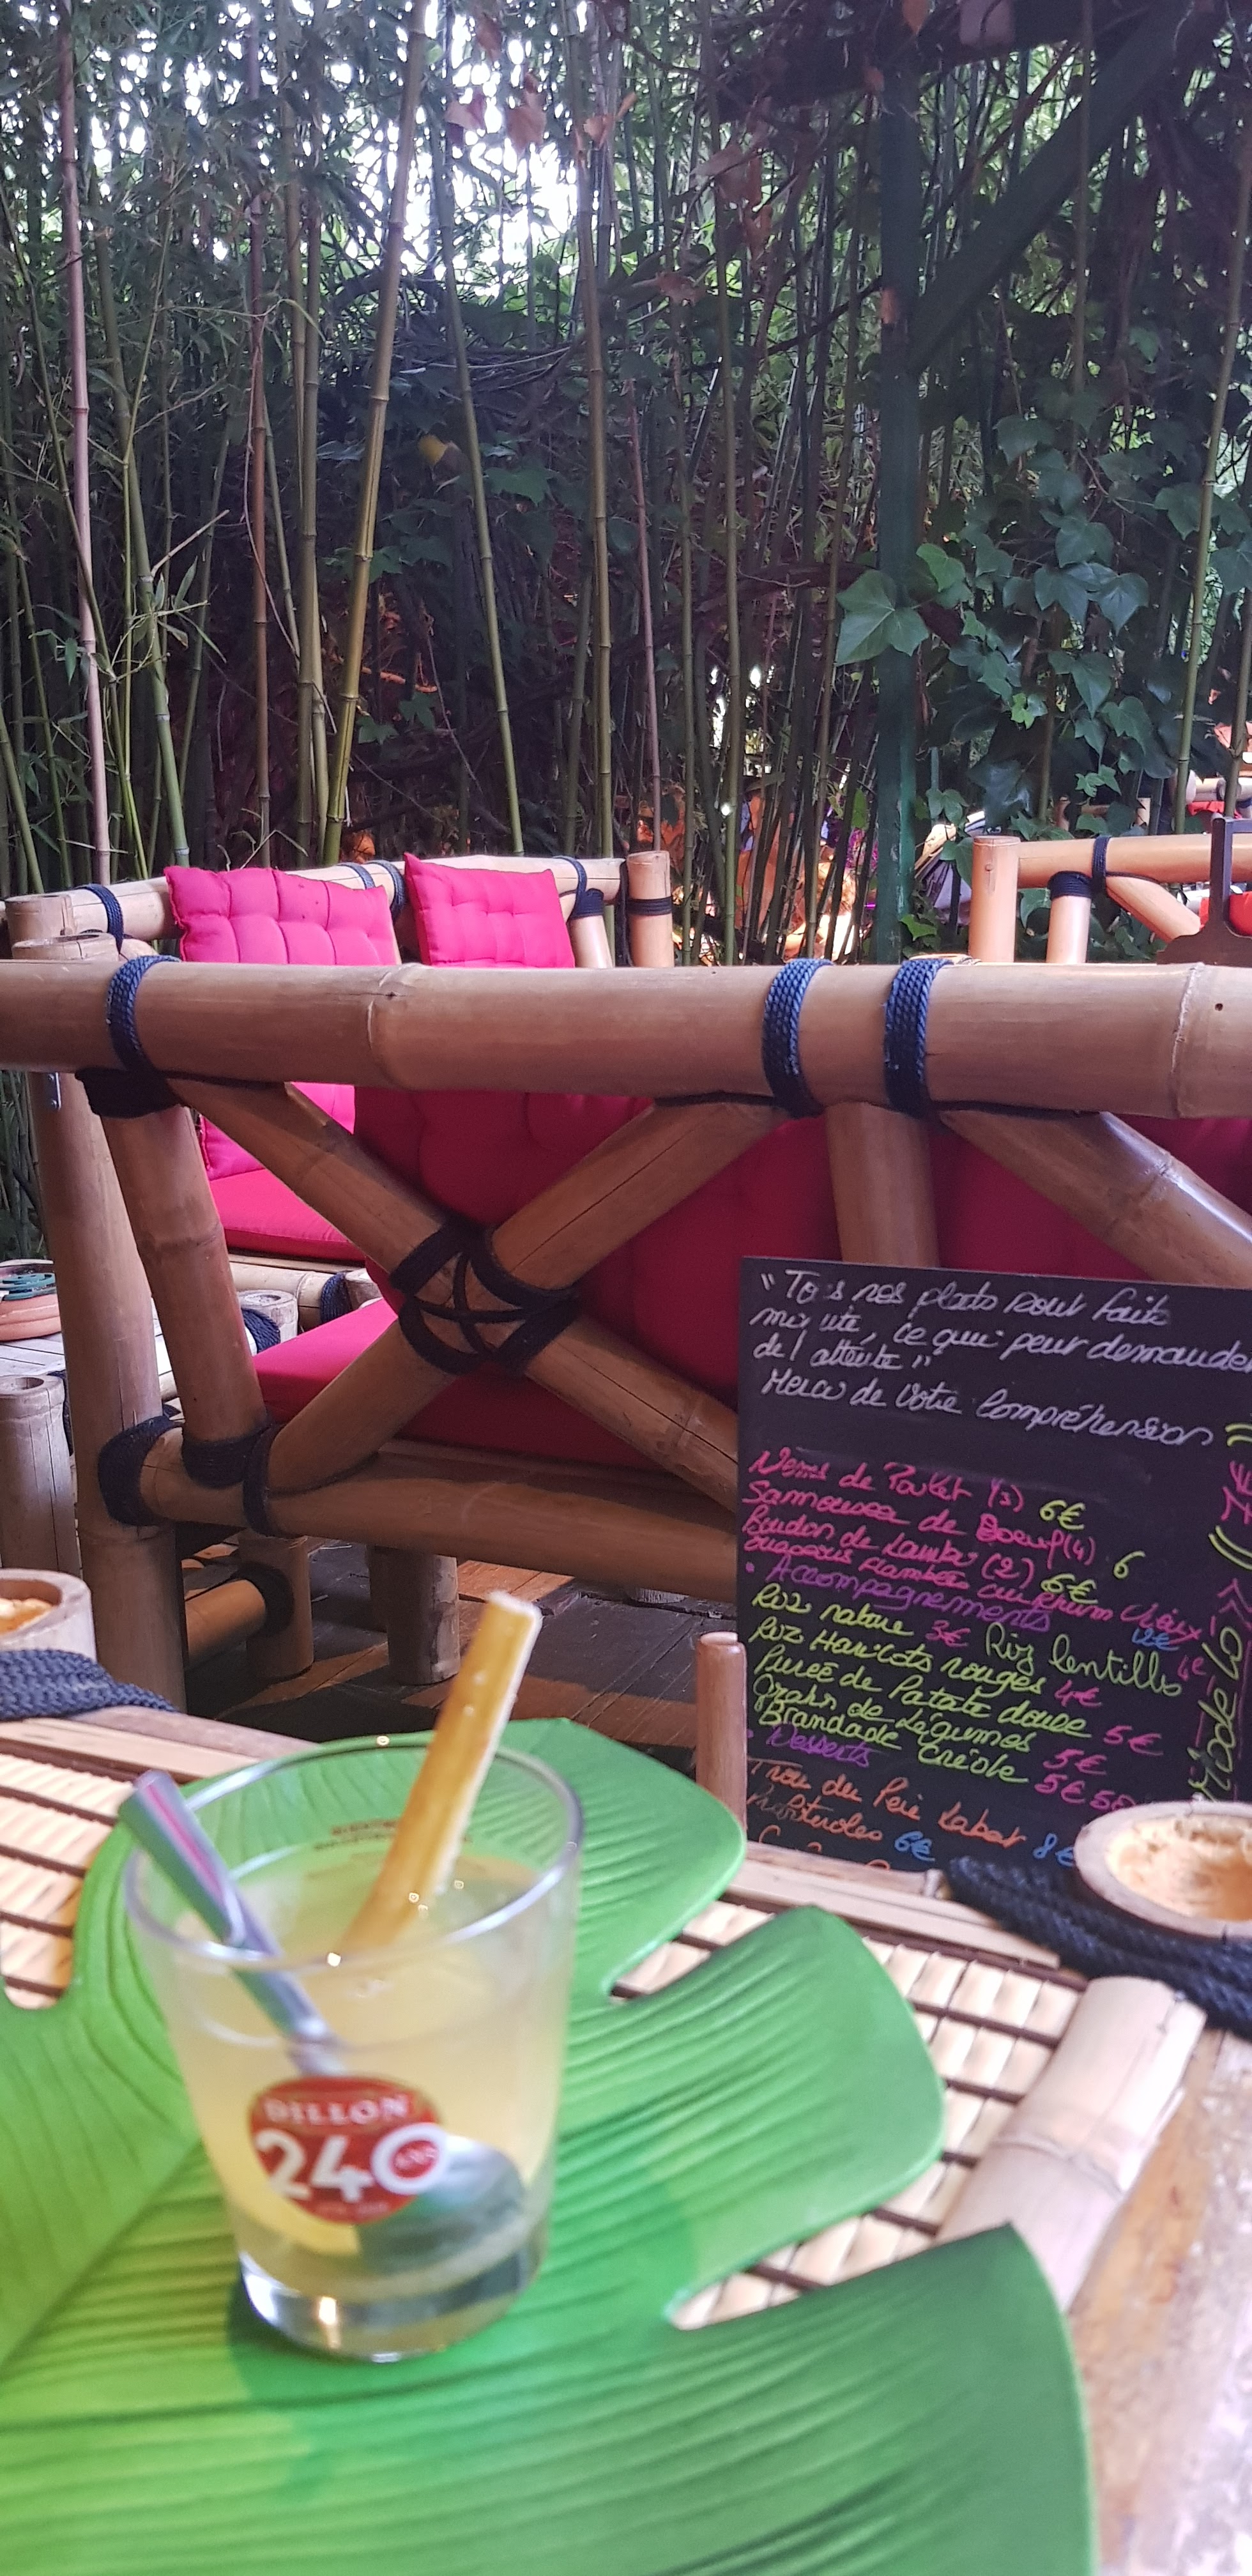 "Tous nos plats sont faits
minute, ce qui peut demander
de l'attente"
Merci de votre compréhension
Nems de Poulet (5) 6€
Samoussa de Boeuf (4) 6
Boudon de Lambi (2) 6€
flambées au Rhum Vieux 12€
• Accompagnements
Riz nature 3€ Riz lentilles 4€
Riz Haricots rouges 4€
Purée de Patate douce 5€
Gratin de Légumes 5€
Brandade Créole 5€50
• Desserts
Trou du Père Labat 8€
6€
7€
DILLON
240
ANS